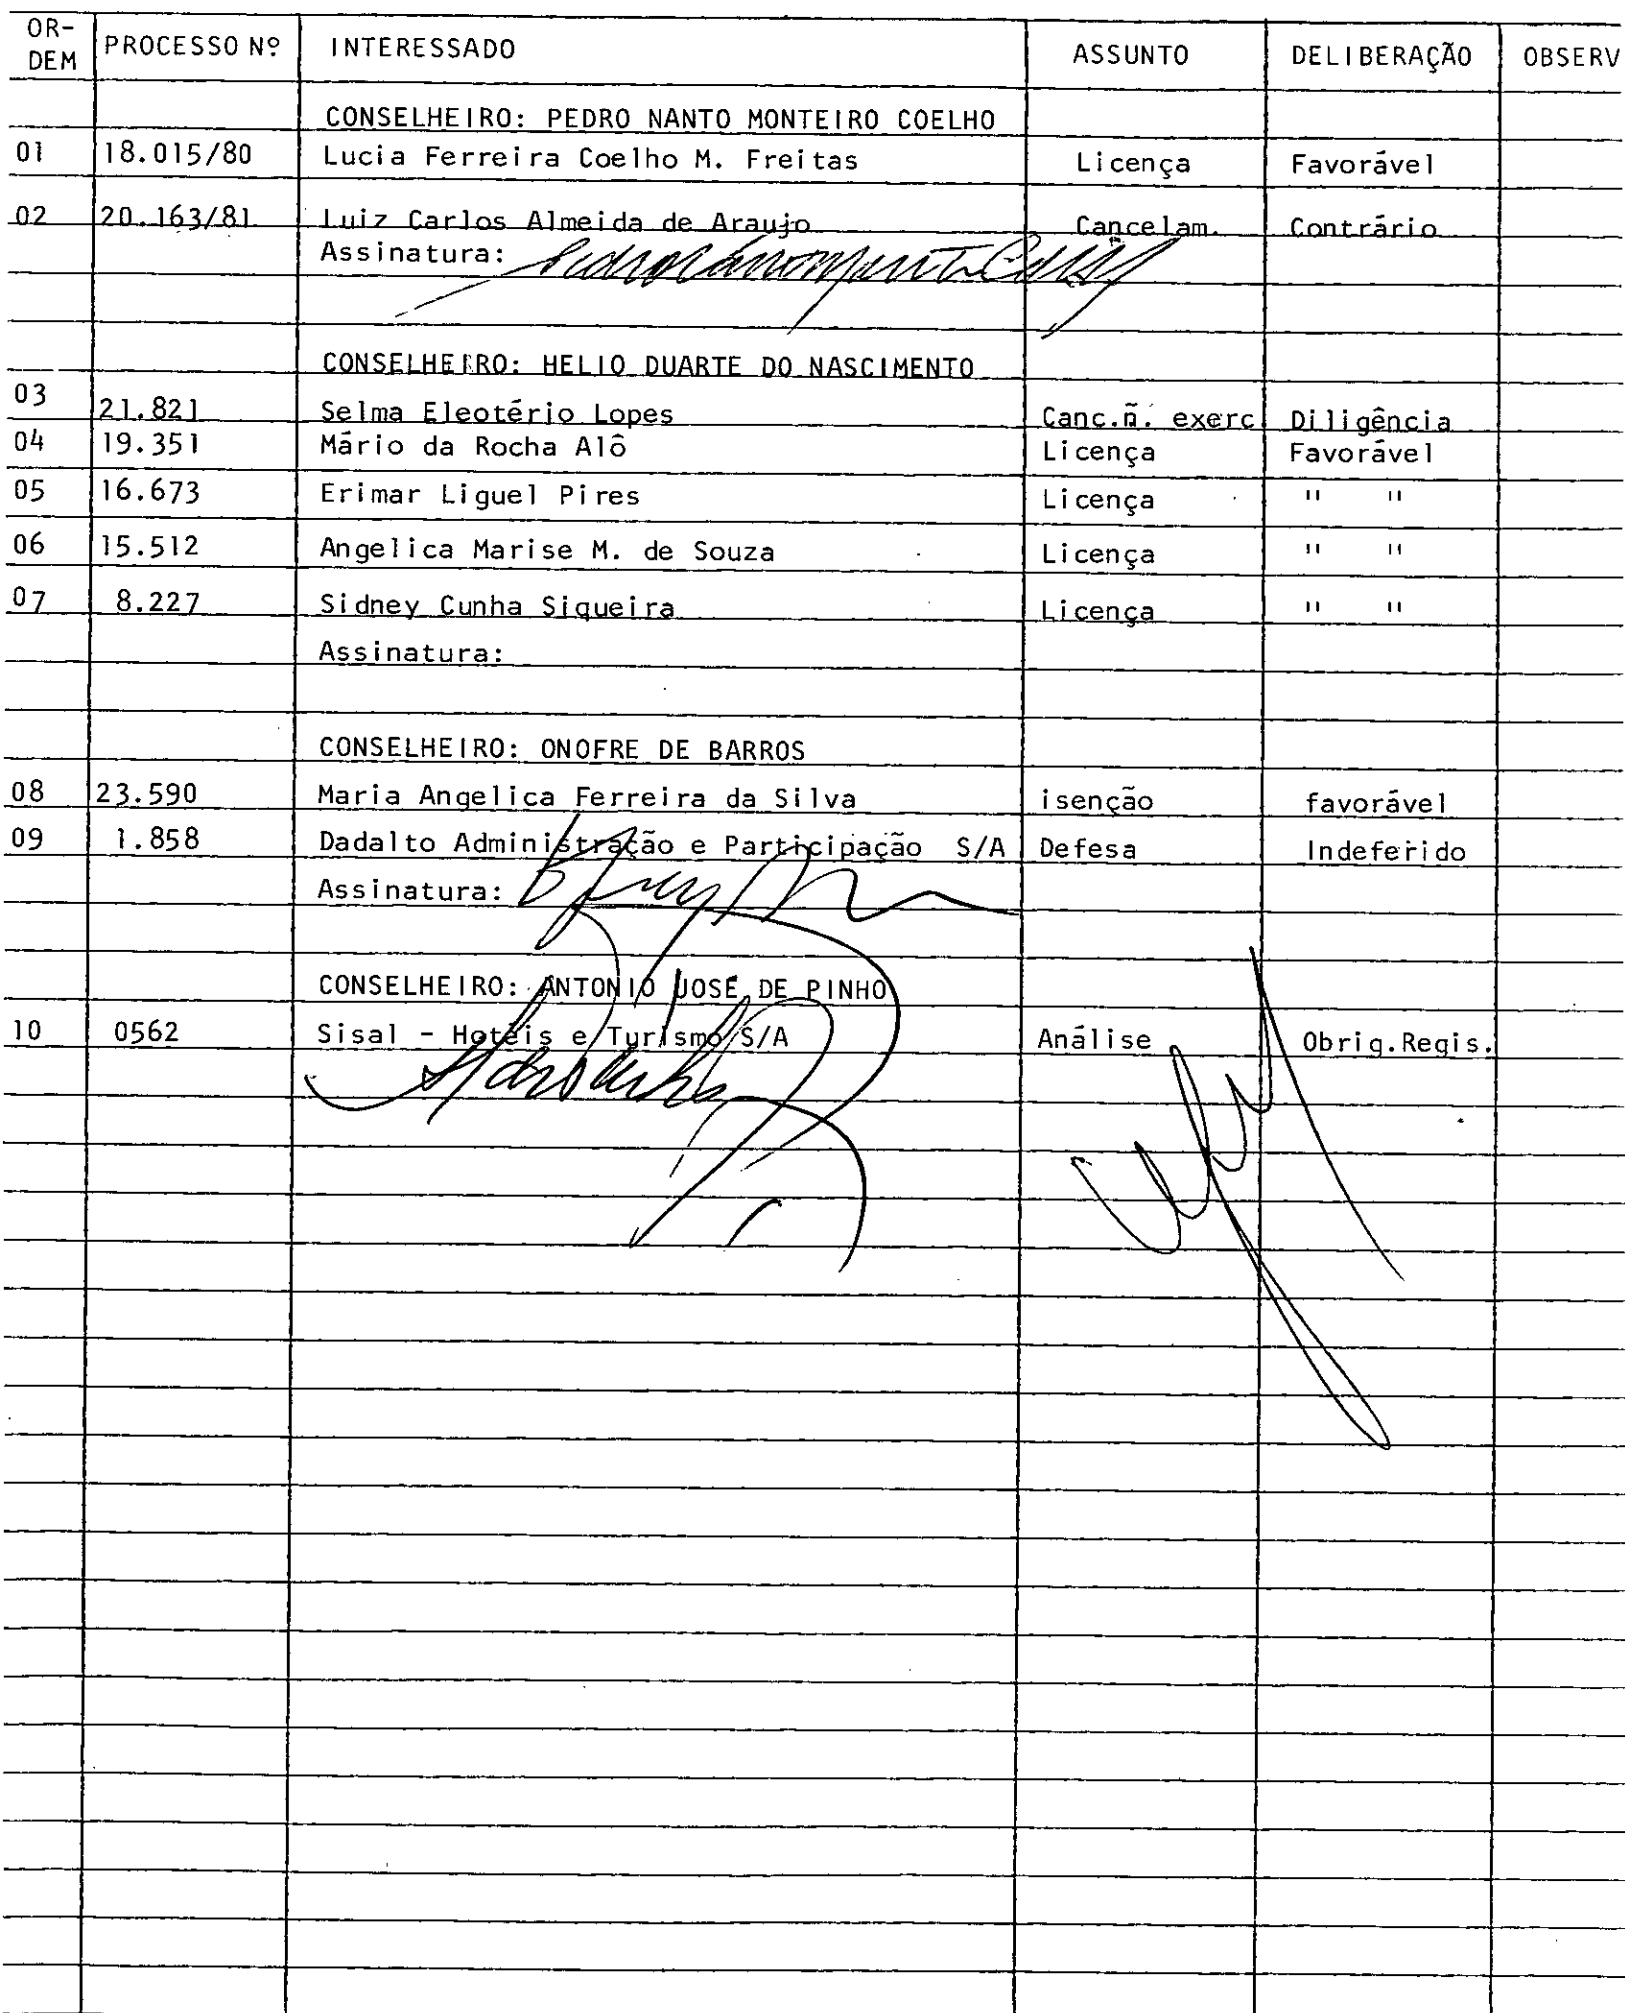 OR-
DEM PROCESSO Nº INTERESSADO ASSUNTO DELIBERAÇÃO OBSERV
CONSELHEIRO: PEDRO NANTO MONTEIRO COELHO
01 18.015/80 Lucia Ferreira Coelho M. Freitas Licença Favorável
02 20.163/81 Luiz Carlos Almeida de Araujo Cancelam. Contrário
Assinatura:
CONSELHEIRO: HELIO DUARTE DO NASCIMENTO
03 21.821 Selma Eleotério Lopes Canc.ñ. exerc Diligência
04 19.351 Mário da Rocha Alô Licença Favorável
05 16.673 Erimar Liguel Pires Licença " "
06 15.512 Angelica Marise M. de Souza Licença " "
07 8.227 Sidney Cunha Siqueira Licença " "
Assinatura:
CONSELHEIRO: ONOFRE DE BARROS
08 23.590 Maria Angelica Ferreira da Silva isenção favorável
09 1.858 Dadalto Administração e Participação S/A Defesa Indeferido
Assinatura:
CONSELHEIRO: ANTONIO JOSÉ DE PINHO
10 0562 Sisal - Hotéis e Turismo S/A Análise Obrig.Regis.